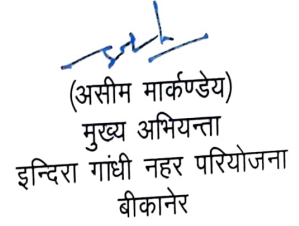 (असीम मार्कण्डेय)
मुख्य अभियन्ता
इन्दिरा गांधी नहर परियोजना
बीकानेर